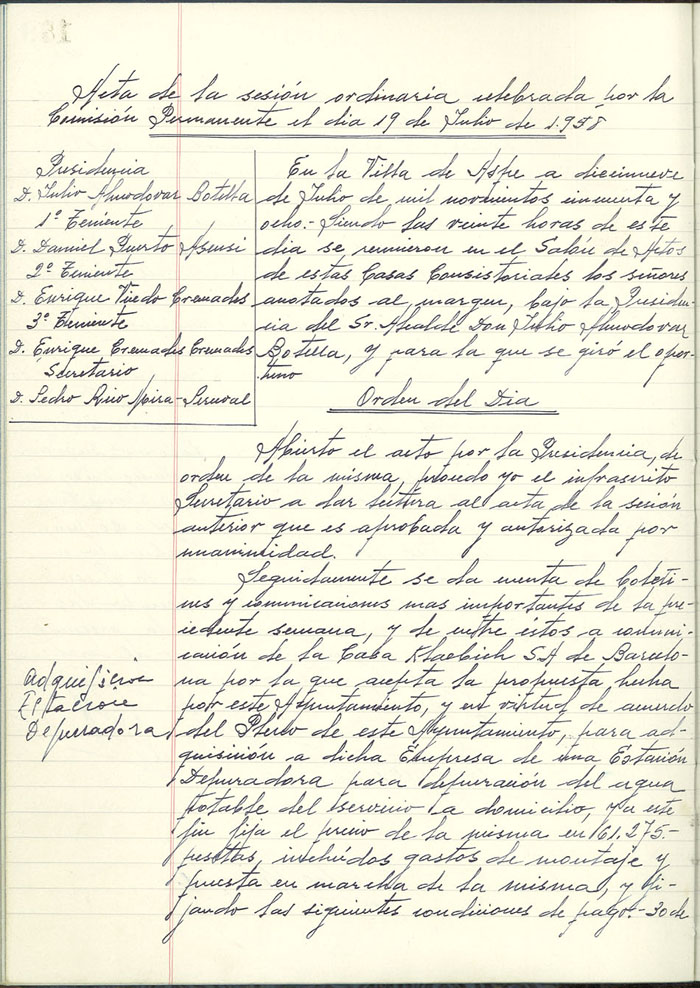 Acta de la sesión ordinaria celebrada por la
Comisión Permanente el dia 19 de Julio de 1.958
Presidencia
D. Julio Almodovar Botella
1º Teniente
D. Daniel Puerto Asensi
2º Teniente
D. Enrique Viedo Cremades
3º Teniente
D. Enrique Cremades Cremades
Secretario
D. Pedro Rico Mira-Perceval
En la Villa de Aspe a diecinueve
de Julio de mil novecientos cincuenta y
ocho.- Siendo las veinte horas de este
dia se reunieron en el Salón de Actos
de estas Casas Consistoriales los señores
anotados al margen, bajo la Presiden-
cia del Sr. Alcalde Don Julio Almodovar
Botella, y para la que se giró el opor-
tuno
Orden del Dia
Abierto el acto por la Presidencia, de
orden de la misma, procedo yo el infrascrito
Secretario a dar lectura al acta de la sesión
anterior que es aprobada y autorizada por
unanimidad.
Seguidamente se da cuenta de Boleti-
nes y comunicaciones mas importantes de la pre-
cedente semana, y de entre éstos a comuni-
cación de la Casa SA de Barcelo-
na por la que acepta la propuesta hecha
por este Ayuntamiento, y en virtud de acuerdo
del Pleno de este Ayuntamiento, para ad-
quisición a dicha Empresa de una Estación
Depuradora para depuración del agua
potable del servicio a domicilio, y a este
fin fija el precio de la misma en 61.275.-
pesetas, incluídos gastos de montaje y
puesta en marcha de la misma, y fi-
jando las siguientes condiciones de pago:- 30 de
Adquisicion
Estacion
Depuradora